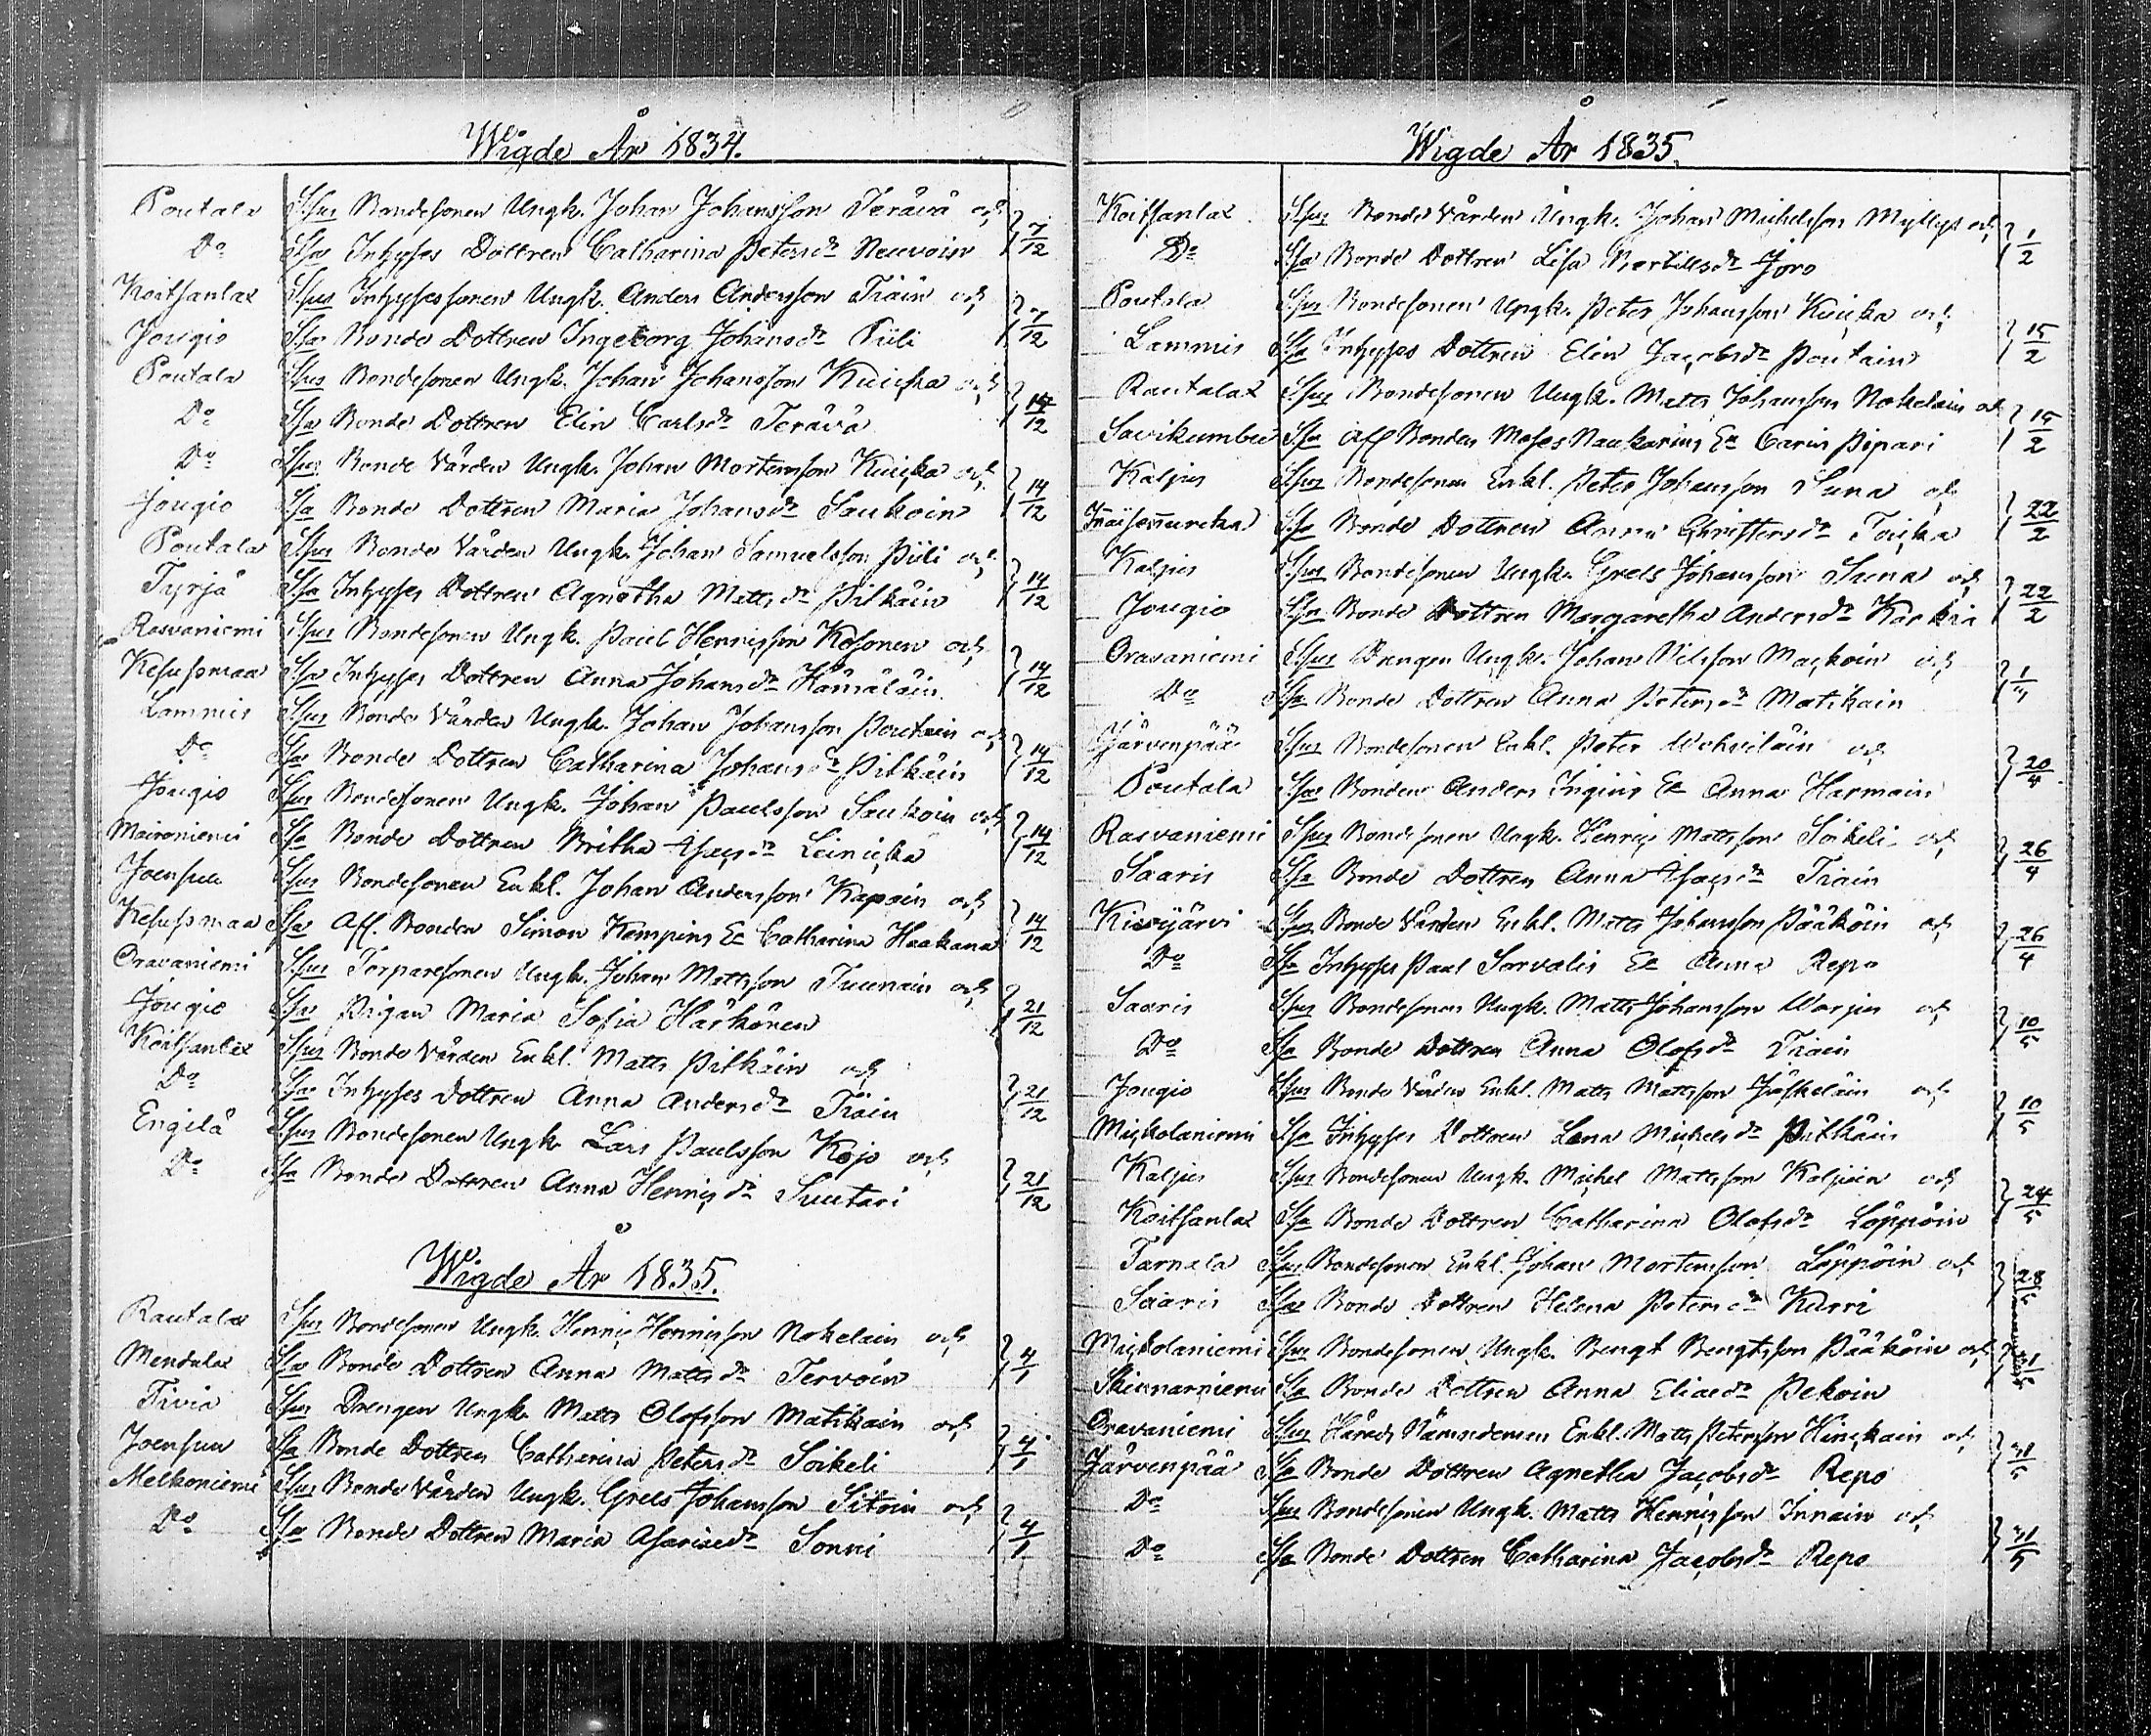 Wigde År 1834.
Poutala Spus Bondesonen Ungk. Johan Johansson Terävä och 7/12
Do Spa Inhyses Dottren Catharina Petersdr Neuvoin
Koitsanlax Spus Inhysessonen Ungk. Anders Andersson Träin och 7/12
Jougio Spa Bonde Dottren Ingeborg Johansdr Piili
Poutala Spus Bondesonen Ungk. Johan Johansson Kuicka och 14/12
Do Spa Bonde Dottren Elin Carlsdr Terävä
Do Spus Bonde Vården Ungk. Johan Mortensson Kuicka och 14/12
Jougio Spa Bonde Dottren Maria Johansdr Saukoin
Poutala Spus Bonde Vården Ungk. Johan Samuelsson Piili och 14/12
Tyrjä Spa Inhyses Dottren Agnetha Mattsdr Pitkäin
Rasvaniemi Spus Bondesonen Ungk. Paul Henricsson Kosonen och 14/12
Kesusmaa Spa Inhyses Dottren Anna Johansdr Hämäläin
Lammis Spus Bonde Vården Ungk. Johan Johansson Poutain och 14/12
Do Spa Bonde Dottren Catharina Johansdr Pitkäin
Jougio Spus Bondesonen Ungk. Johan Paulsson Saukoin och 14/12
Maironiemi Spa Bonde Dottren Britha Isacsdr Leinicka
Joensuu Spus Bondesonen Enkl. Johan Andersson Kapain och 14/12
Kesusmaa Spa Aff. Bonden Simon Kempins Ea Catharina Haakana
Oravaniemi Spus Torparesonen Ungk. Johan Mattsson Tuunain och 21/12
Jougio Spa Pigan Maria Sofia Härkönen
Koitsanlax Spus Bonde Vården Enkl. Matts Pitkäin och 21/12
Do Spa Inhyses Dottren Anna Andersdr Träin
Engilä Spus Bondesonen Ungk. Lars Paulsson Kojo och 21/12
Do Spa Bonde Dottren Anna Henricsdr Suutari
Wigde År 1835.
Rautalax Spus Bondesonen Ungk. Henric Henricsson Nokelain och 4/1
Mendulax Spa Bonde Dottren Anna Mattsdr Tervoin
Tivia Spus Drengen Ungk. Matts Olofsson Matikain och 4/1
Joensuu Spa Bonde Dottren Catharina Petersdr Soikeli
Melkoniemi Spus Bonde Vården Ungk. Grels Johansson Sitoin och 4/1
Do Spa Bonde Dottren Maria Asariaedr Sonni
Wigde År 1835.
Koitsanlax Spus Bonde Vården Ungk. Johan Michelsson Myllys och 1/2
Do Spa Bonde Dottren Lisa Bertillsdr Joro
Poutala Spus Bondesonen Ungk. Peter Johansson Kuicka och 15/2
Lammis Spa Inhyses Dottren Elin Jacobsdr Poutain
Rautalax Spus Bondesonen Ungk. Matts Johansson Nokelain och 15/2
Savikumbu Spa Aff Bonden Moses Naukarins Ea Carin Pipari
Kaljus Spus Bondesonen Enkl. Peter Johansson Suna och 22/2
Spa Bonde Dottren Anna Christersdr Toicka
Kaljus Spus Bondesonen Ungk. Grels Johansson Suna och 22/2
Jougio Spa Bonde Dottren Margaretha Andersdr Karkia
Oravaniemi Spus Drengen Ungk. Johan Nilsson Mackoin och
Do Spa Bonde Dottren Anna Petersdr Matikain
Järvenpää Spus Bondesonen Enkl. Peter Wohvilain och 20/4
Poutala Spa Bonden Anders Ingins Ea Anna Harmain
Rasvaniemi Spus Bondesonen Ungk. Henric Mattsson Soikeli och 26/4
Saaris Spa Bonde Dottren Anna Isacsdr Träin
Kivijärvi Spus Bonde Vården Enkl. Matts Johansson Pääköin och 26/4
Do Spa Inhyses Paul Sorvalis Ea Anna Repo
Saaris Spus Bondesonen Ungk. Matts Johansson Worjus och 10/5
Do Spa Bonde Dottren Anna Olofsdr Träin
Jougio Spus Bonde Vården Enkl. Matts Mattsson Jäskeläin och 10/5
Mickolaniemi Spa Inhyses Dottren Lena Michelsdr Pitkäin
Kaljus Spus Bondesonen Ungk. Michel Mattsson Kaljuin och 24/5
Koitsanlax Spa Bonde Dottren Catharina Olofsdr Löppöin
Tarnala Spus Bondesonen Enkl. Johan Mortensson Löppöin och 28/5
Saaris Spa Bonde Dottren Helena Petersdr Kurri
Mickolaniemi Spus Bondesonen Ungk. Bengt Bengtsson Pääköin och 31/5
Skinnarniemi Spa Bonde Dottren Anna Eliaedr Pekoin
Oravaniemi Spus Härads Nämndeman Enkl. Matts Petersson Hinckain och 31/5
Järvenpää Spa Bonde Dottren Agnetha Jacobsdr Repo
Do Spus Bondesonen Ungk. Matts Henricsson Innain och 31/5
Do Spa Bonde Dottren Catharina Jacobsdr Repo